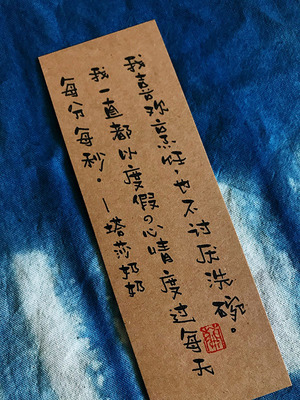 我喜欢烹饪，也不讨厌洗碗。
我一直都以度假の心情度过每天
每分每秒。—塔莎邦邦